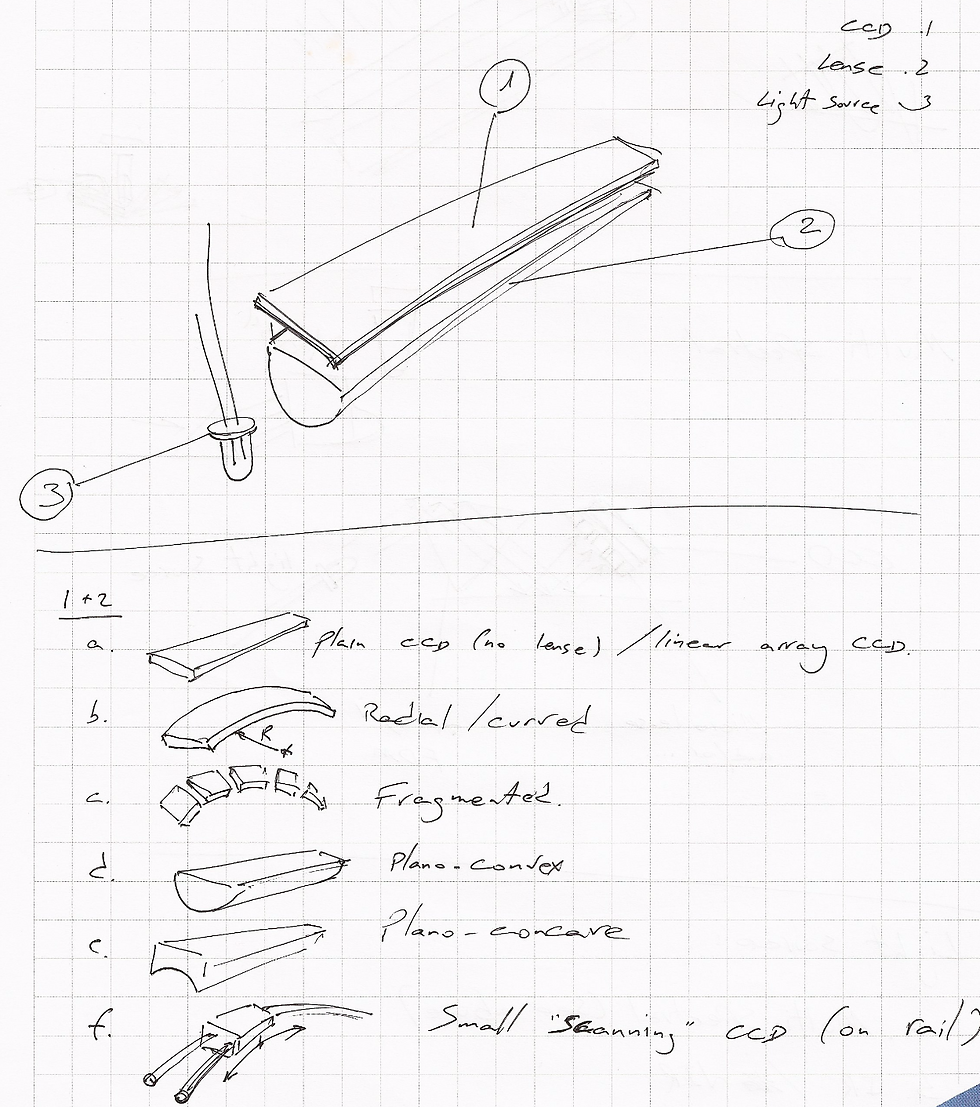 CCD .1
Lense .2
Light source .3
1
2
3
1+2
a. plain CCD (no lense) / linear array CCD.
b. Radial / curved
R
c. Fragmented.
d. Plano-convex
e. Plano-concave
f. Small "scanning" CCD (on rail)